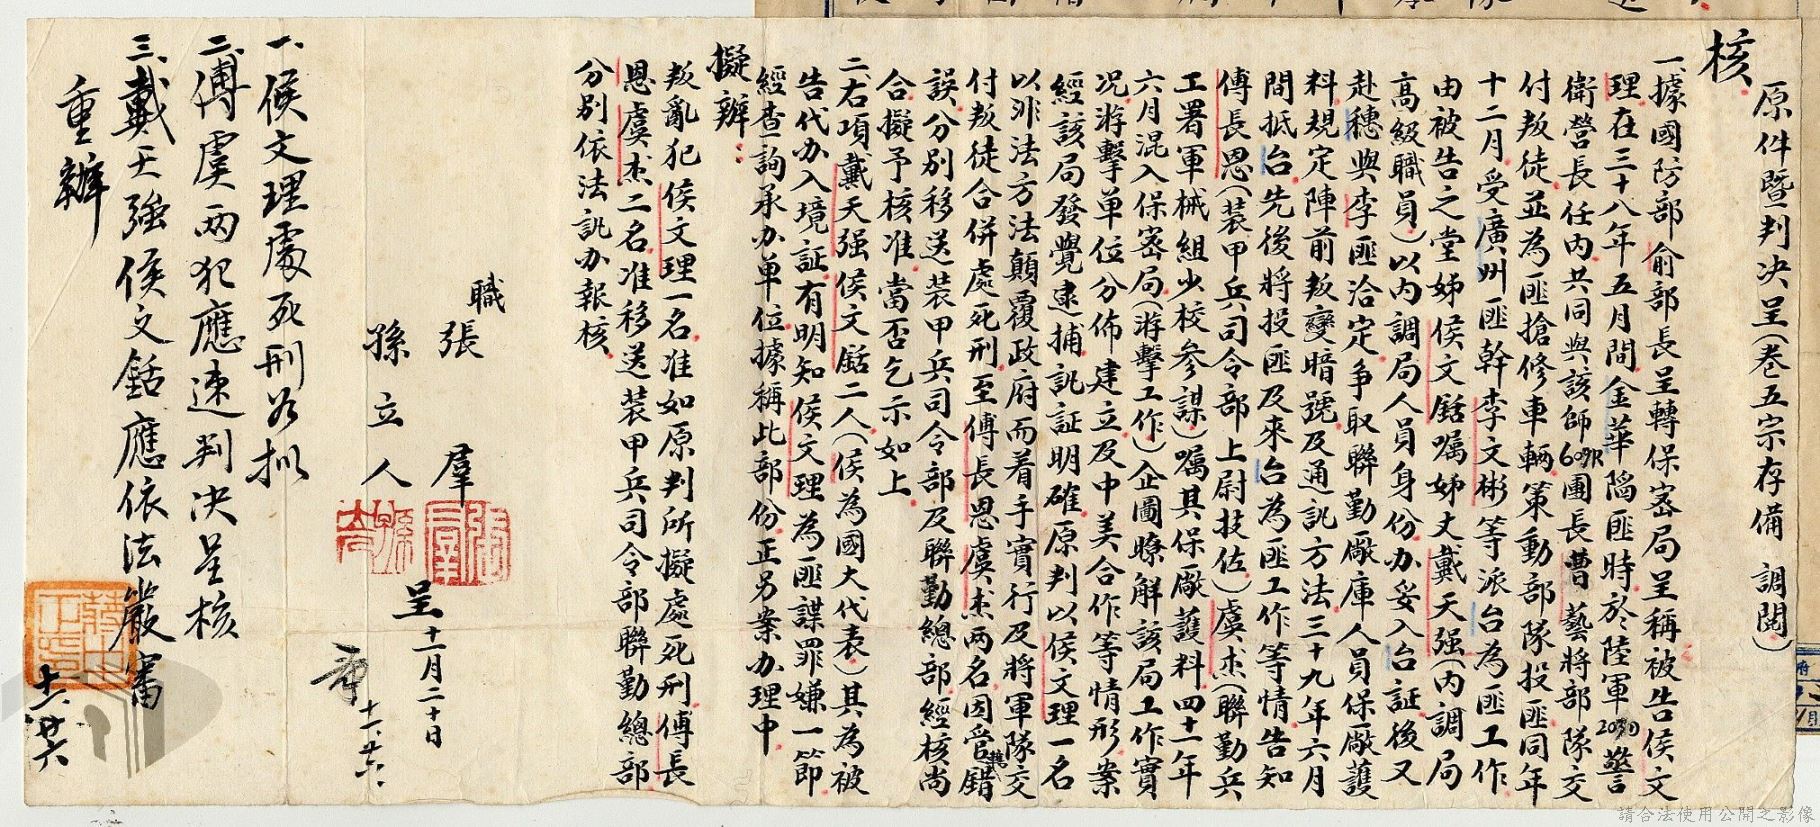 原件暨判決呈(卷五宗存備 調閱)
核
一、據國防部俞部長呈轉保密局呈稱被告侯文
理在三十八年五月間金華陷匪時於陸軍203D警
衛營長任內共同與該師609R團長曹藝將部隊交
付叛徒並為匪搶修車輛策動部隊投匪同年
十二月受廣州匪幹李文彬等派台為匪工作
由被告之堂姊侯文銛囑姊丈戴天强(內調局
高級職員)以內調局人員身份办妥入台証後又
赴穗與李匪洽定爭取聯勤廠庫人員保廠護
料規定陣前叛變暗號及通訊方法三十九年六月
間抵台先後將投匪及來台為匪工作等情告知
傅長恩(裝甲兵司令部上尉技佐)虞杰(聯勤兵
工署軍械組少校參謀)囑其保廠護料四十一年
六月混入保密局(游擊工作)企圖瞭解該局工作實
况游擊單位分佈建立及中美合作等情形案
經該局發覺逮捕訊証明確原判以侯文理一名
以非法方法顛覆政府而着手實行及將軍隊交
付叛徒合併處死刑至傅長恩虞杰兩名因管轄錯
誤分別移送裝甲兵司令部及聯勤總部經核尚
合擬予核准當否乞示如上
二、右項戴天强侯文銛二人(侯為國大代表)其為被
告代办入境証有明知侯文理為匪諜罪嫌一節
經查詢承办單位據稱此部份正另案办理中
擬辦:
叛亂犯侯文理一名准如原判所擬處死刑傅長
恩虞杰二名准移送裝甲兵司令部聯勤總部
分別依法訊办報核
職
張羣
孫立人
呈十一月二十日
張羣
十一、廿六、
一、侯文理處死刑如擬
二、傅虞兩犯應速判決呈核
三、戴天强侯文銛應依法嚴審
重辦
十一、廿六
請合法使用公開之影像